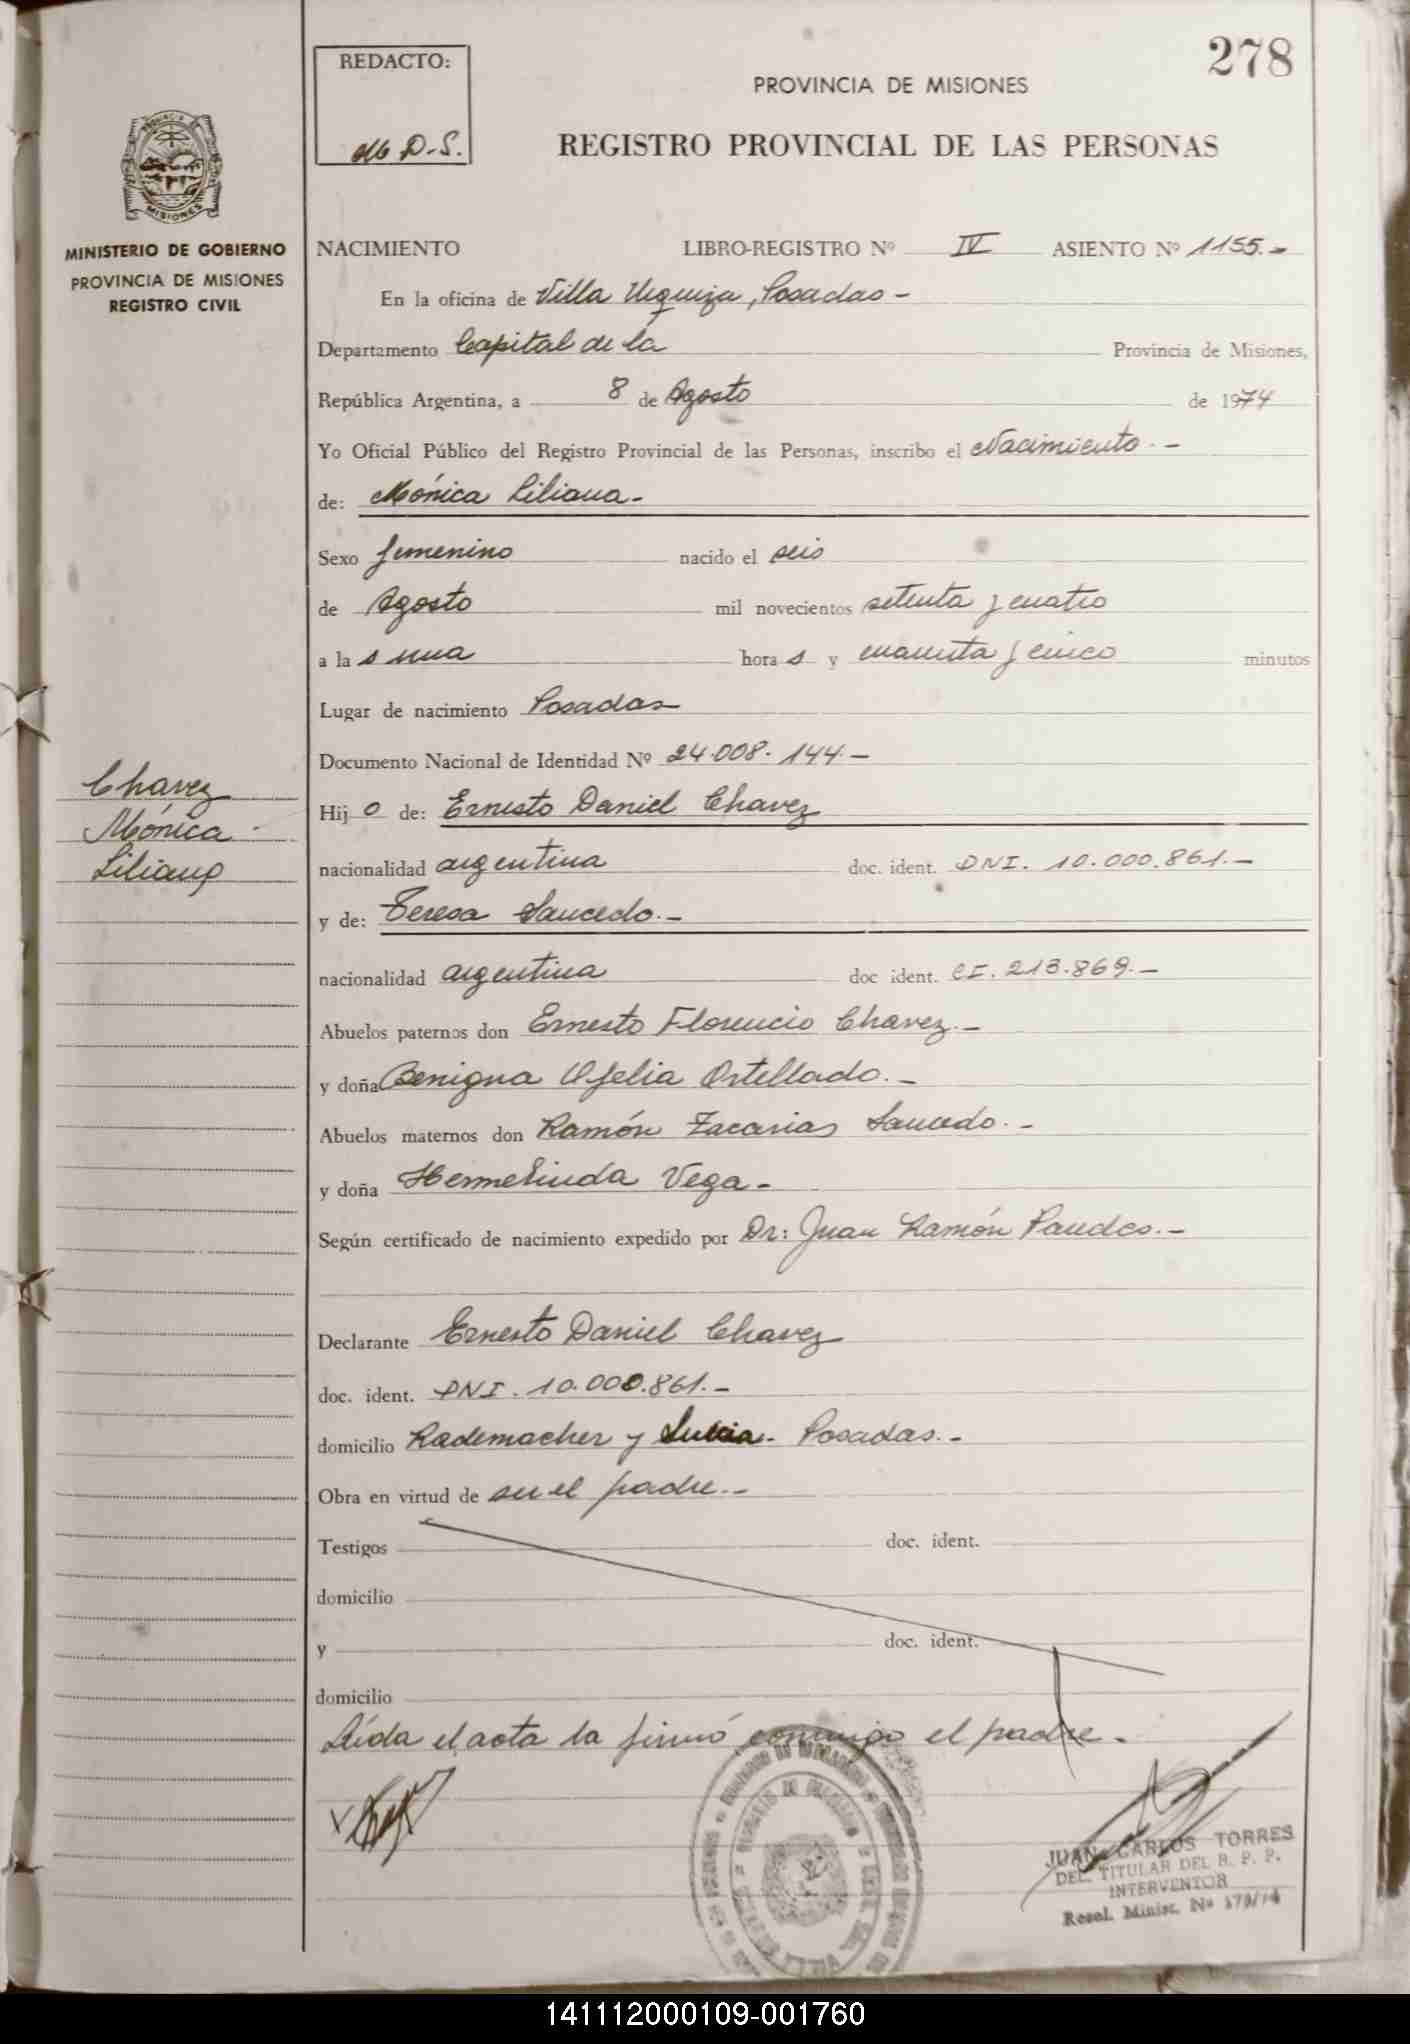 278
REDACTO:
PROVINCIA DE MISIONES
D.S.
REGISTRO PROVINCIAL DE LAS PERSONAS
PROVINCIA DE
MISIONES
MINISTERIO DE GOBIERNO
PROVINCIA DE MISIONES
REGISTRO CIVIL
NACIMIENTO LIBRO-REGISTRO Nº IV ASIENTO Nº 1155.-
En la oficina de Villa Urquiza, Posadas -
Departamento Capital de la Provincia de Misiones,
República Argentina, a 8 de Agosto de 1974
Yo Oficial Público del Registro Provincial de las Personas, inscribo el Nacimiento.-
de: Mónica Liliana.-
Sexo femenino nacido el seis
de Agosto mil novecientos setenta y cuatro
a las una horas y cuarenta y cinco minutos
Lugar de nacimiento Posadas
Documento Nacional de Identidad Nº 24.008.144.-
Chavez
Mónica
Liliana
Hijo de: Ernesto Daniel Chavez
nacionalidad argentina doc. ident. DNI. 10.000.861.-
y de: Teresa Saucedo.-
nacionalidad argentina doc ident. CI. 213.869.-
Abuelos paternos don Ernesto Florencio Chavez.-
y doña Benigna Ofelia Ortellado.-
Abuelos maternos don Ramón Zacarias Saucedo.-
y doña Hermelinda Vega.-
Según certificado de nacimiento expedido por Dr: Juan Ramón
Declarante Ernesto Daniel Chavez
doc. ident. DNI. 10.000.861.-
domicilio Rademacher y Posadas.-
Obra en virtud de ser el padre.-
Testigos doc. ident.
domicilio
y doc. ident.
domicilio
Leída el acta la firmó conmigo el padre.-
JUAN CARLOS TORRES
DEL. TITULAR DEL R. P. P.
INTERVENTOR
Resol. Minist. Nº
141112000109-001760